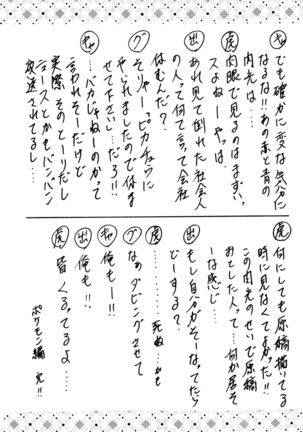 ㋖ でも確かに変な気分に
なるな!!あの赤と青の
閃光は……
虎 肉眼で見るのはまずい
スよねーやっぱ
出 あれ見て倒れた社会人
の人って何て言って会社
休むんだ?
グ そりゃーピカチュウに
やられましたので休ま
せて下さい…だろ!!
㋖ …バカじゃねーのかって
言われそーだけど
実際そのとーりだし
ニュースとかもバンバン
放送されてるし…
虎 何にしても原稿描いてる
時に見なくてよかった!!
この閃光のせいで原稿
おとした人って…何か居そ
ーな感じ…
出 もし自分がそーなってたら
どーする?
虎 ………死ぬ…かも
グ なぁダビングさせて
㋖ 俺もー!!
出 俺も!!
虎 皆くるってるよ……
ポケモン編 完!!